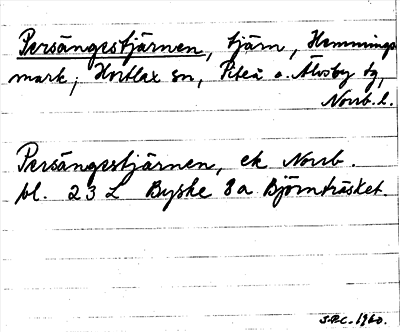 Persängestjärnen, tjärn, Hemmings-
mark, Hortlax sn, Piteå o. Älvsby tg,
Norrb. l.
Persängestjärnen, ek Norrb.
bl. 23 L Byske 8a Björnträsket.
1960.